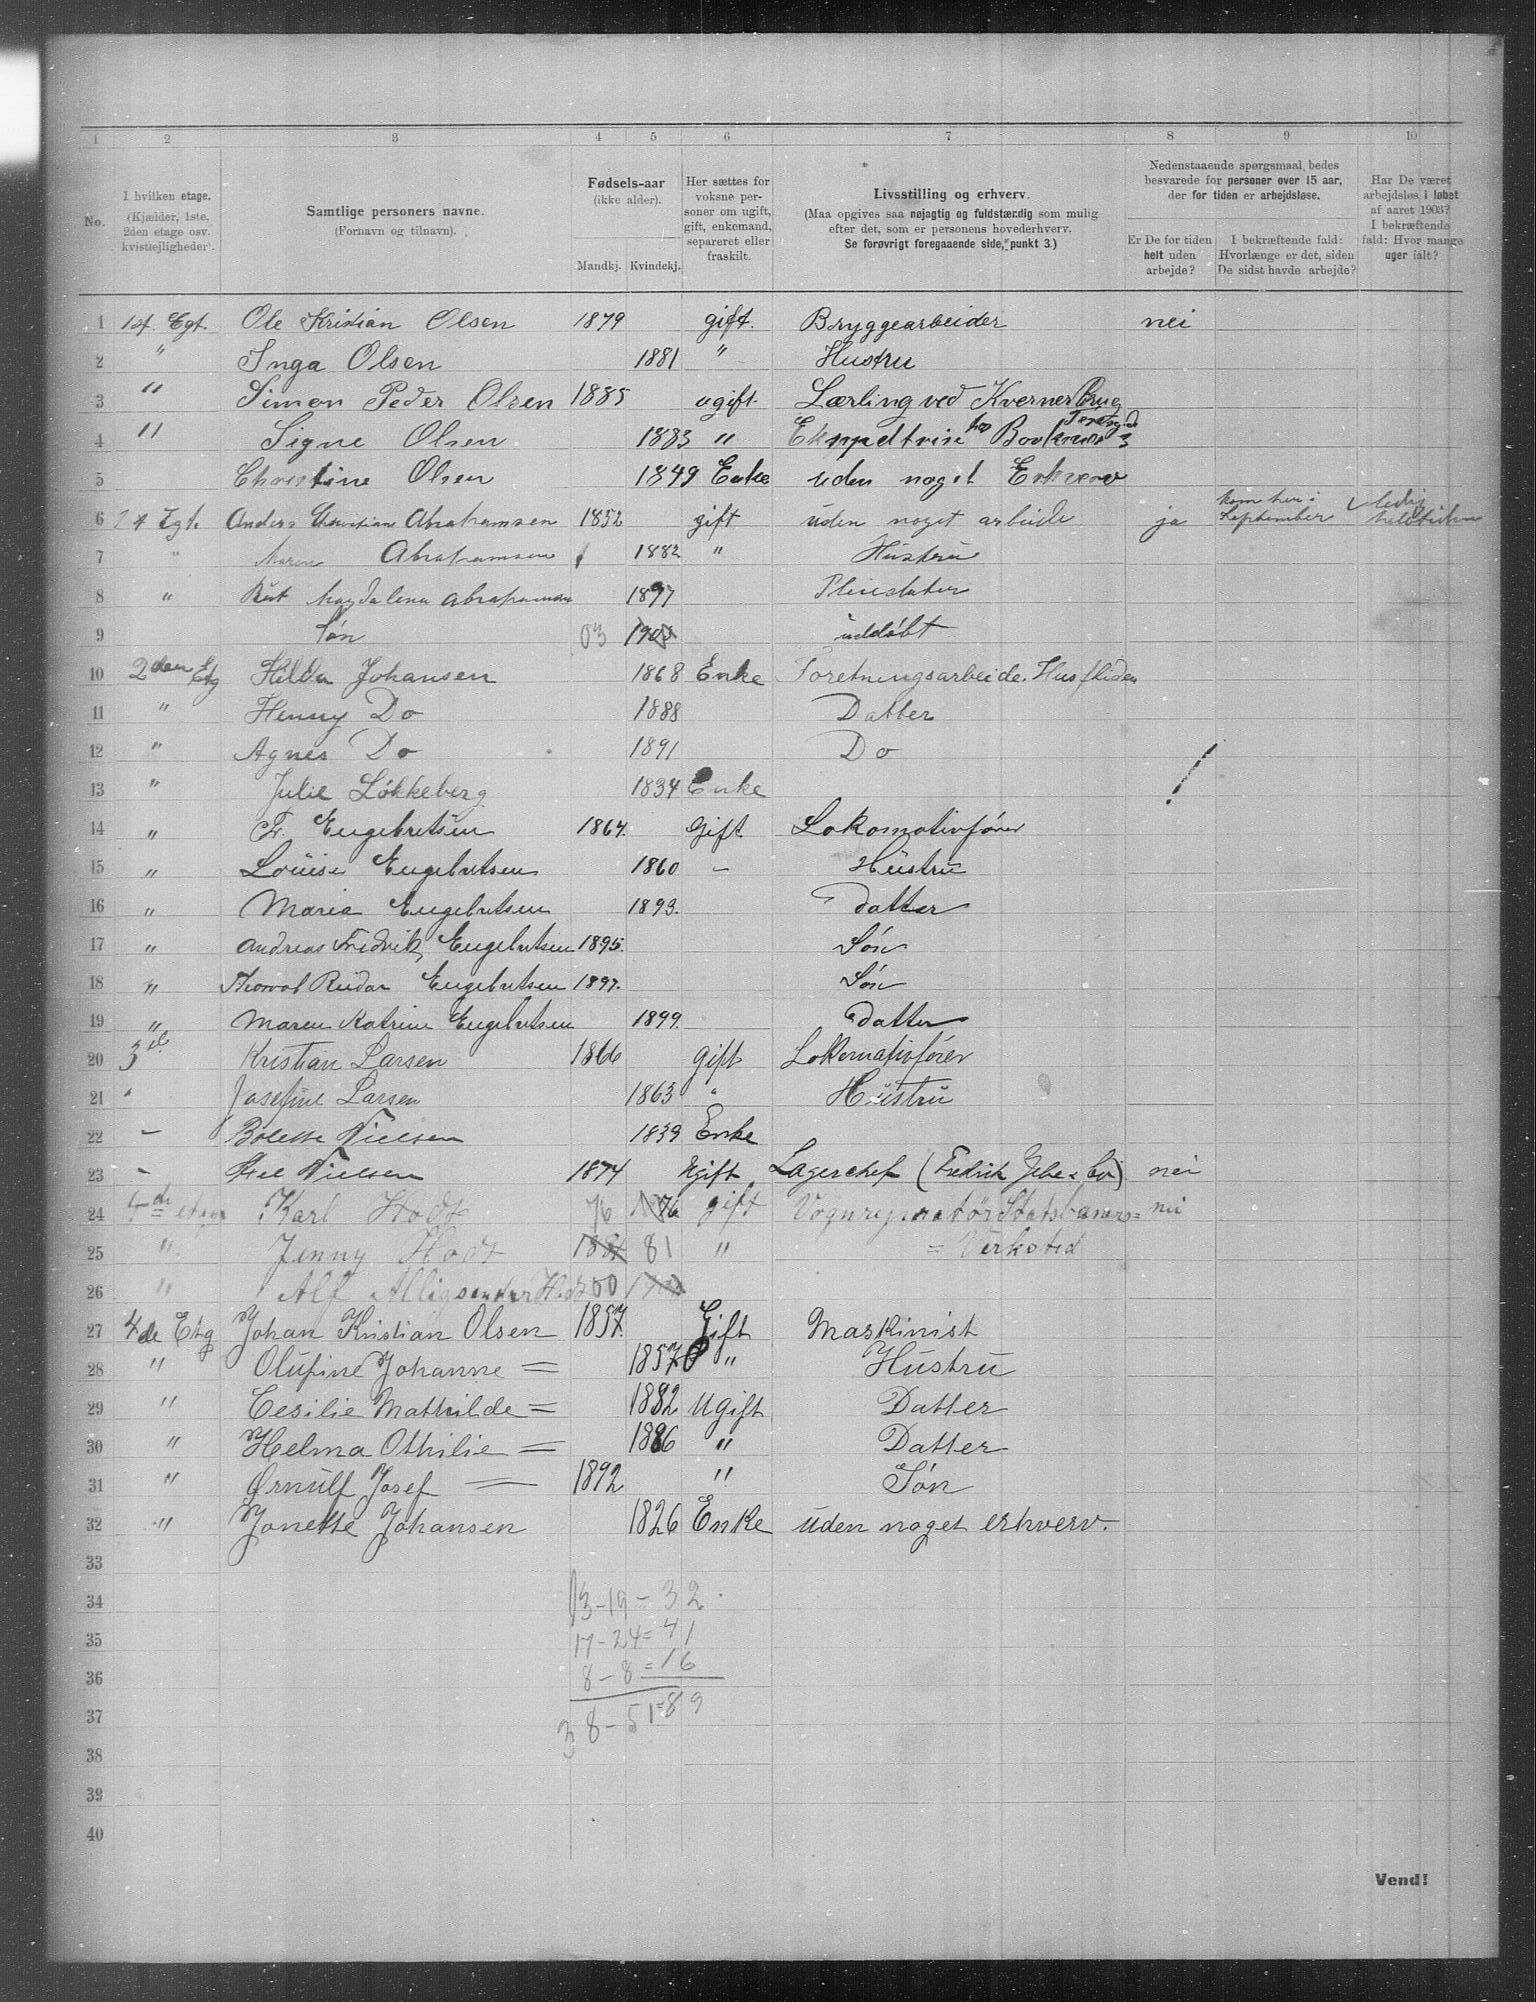 1 2 3 4 5 6 7 8 9 10
No.
I hvilken etage. (Kjælder, 1ste, 2den etage osv. kvistlejligheder.
Samtlige personers navne. (Fornavn og tilnavn).
Fødsels-aar (ikke alder). Mandkj. Kvindekj.
Her sættes for voksne personer om ugift, gift, enkemand, separeret eller fraskilt.
Livsstilling og erhverv. (Maa opgives saa nøjagtig og fuldstændig som mulig efter det, som er personens hovederhverv. Se forøvrigt foregaaende side, punkt 3.)
Nedenstaaende spørgsmaal bedes besvarede for personer over 15 aar, der for tiden er arbejdsløse.
Er De for tiden helt uden arbejde?
I bekræftende fald: Hvorlænge er det, siden De sidst havde arbejde?
Har De været arbejdsløs i løbet af aaret 1903? I bekræftende fald: Hvor mange uger ialt?
1 1st. Egt. Ole Kristian Olsen 1879 gift. Bryggearbeider nei
2 " Inga Olsen 1881 " Hustru
3 " Simon Peder Olsen 1885 ugift Lærling ved Kverner Brug
4 " Signe Olsen 1883 "
5 Christine Olsen 1849 Enke uden noget Erhverv
6 Egt. Anders Christian Abrahamsen 1852 gift uden noget arbeide ja kom her i September ledig
7 " Maren Abrahamsen 1882 " Hustru
8 " Magdalena Abrahamsen 1897
9 Søn 03 1903 uddøbt
10 2den Etg Hilda Johansen 1868 Enke Foretningsarbeide. Husfliden
11 " Henny Do 1888 Datter
12 " Agnes Do 1891 Do
13 " Julie Løkkeberg 1834 Enke
14 " F. Engebretsen 1864. Gift Lokomotivfører
15 " Louise Engebretsen 1860 - Hustru
16 " Marie Engebretsen 1893. datter
17 " Andreas Fredrik Engebretsen 1895. Søn
18 " Thorval Reidar Engebretsen 1897. Søn
19 " Maren Katrine Engebretsen 1899. datter
20 3d Kristian Larsen 1866 gift Lokomotivfører
21 " Josefine Larsen 1863 " Hustru
22 - Bolette Nielsen 1839 Enke
23 - Nielsen 1874 Ugift Lagerchef (Fredrik Jebe & Co) nei
24 Karl Hodt 76 gift Vognreparatør Statsbanens= nei
25 " Jenny Hodt 81 " = Verksted
26 " Alf 00
27 4de Etg Johan Kristian Olsen 1857. Gift Maskinist
28 " Olufine Johanne = 1857 " Hustru
29 " Cesilie Mathilde = 1882 Ugift Datter
30 " Helma Othilie = 1886 " Datter
31 " Ørnulf Josef = 1892 " Søn
32 " Jonette Johansen 1826 Enke uden noget erhverv.
33
34 13-19-32.
35 17-24=41
36 8-8=16
37 38-51=89
38
39
40
Vend!